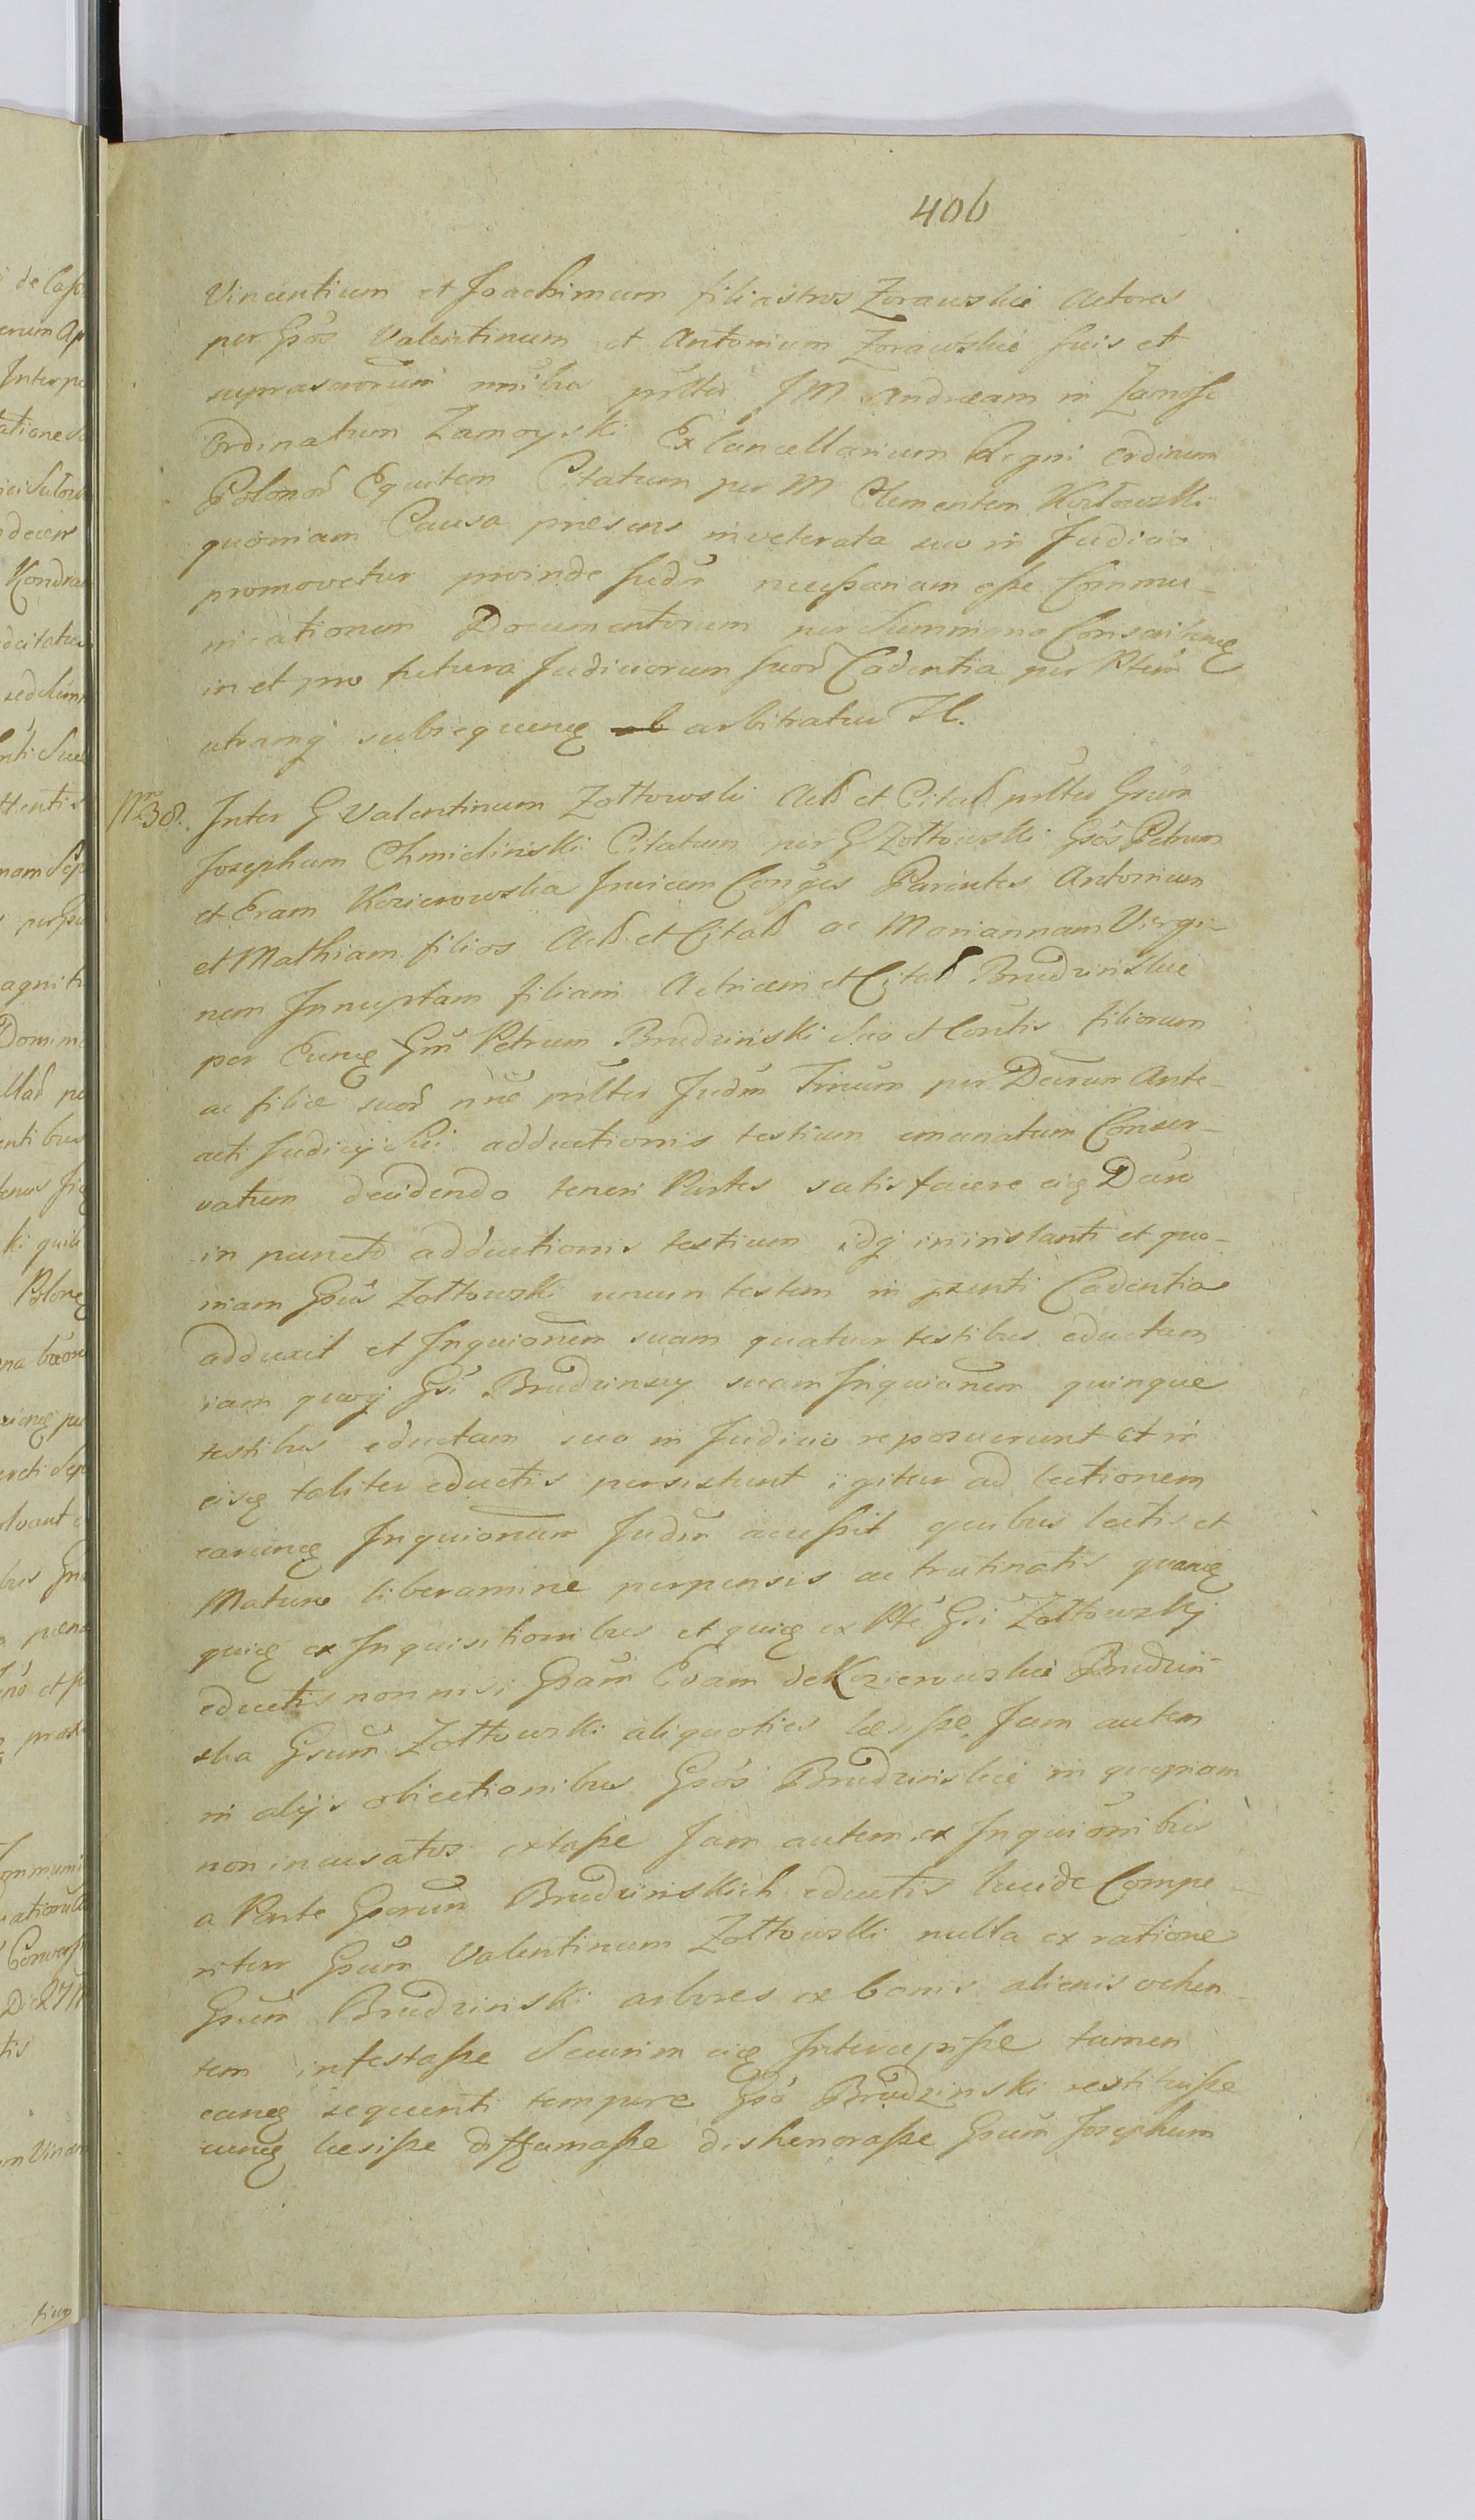 406
Vincentium et Joachimum filiastros Zorawskie Actores
per Gsos Valentinum et Antonium Zorawskie suis et
suprascriorum nnibus prltes JM Andream in Zamosc
Ordinatum Zamoyski ExCancellarium Regni Ordinum
Polonor Equitem Citatum per M Clementem Kozlowski
quoniam Causa praesens inveterata suo in Judicio
promovetur proinde Judm necessariam esse Commu-
nicationem Documentorum per Summana Conscribend
in et pro futura Judiciorum suor Cadentia per Ptem
utramq subsequend arbitratur H.
Nro 38. Inter G Valentinum Zołtowski Act et Citat prltes Gsum
Josephum Chmielinski Citatum per G Zołtowski Gsos Petrum
et Evam Kozierowska Invicem Conges Parentes Antonium
et Mathiam filios Act et Citat ac Mariannam Virgi-
nem Innuptam filiam Actricem et Citat Brudzinskie
per Eund Gm Petrum Brudzinski Suo et Contis filiorum
ac filiae suor nne prltes Judm Trium per Decrum Ante-
acti Judicij Sui adductionis testium emanatum Conser-
vatum decidendo teneri Partes satisfacere eid Dcro
in puncto adductionis testium idq in instanti et quo-
niam Gsus Zołtowski unum testem in pzenti Cadentia
adduxit et Inquionem suam quatuor testibus eductam
iam quoq Gsi Brudzinscy suam Inquionem quinque
testibus eductam suo in Judicio reposuerunt et in
eisd taliter eductis persistunt igitur ad lectionem
earund Inquionum Judm accessit quibus lectis et
Maturo liberamine perpensis ac trutinatis quand
quid ex Inquisitionibus et quid ex Pte Gsi Zołtowskj
eductis nonnisi Gsam Evam de Kozierowskie Brudzin-
ska Gsum Zołtowski aliquoties laesisse Jam autem
in alijs obiectionibus Gsos Brudzinskie in quopiam
non incusatos extasse Jam autem ex Inquionibus
a Parte Gsorum Brudzinskich eductis lucide Compe-
ritur Gsum Valentinum Zołtowski nulla ex ratione
Gsum Brudzinski arbores ex bonis alienis vehen-
tem infestasse Securim eid Intercepisse tamen
eand sequenti tempore Gso Brudzinski restituisse
eund laesisse diffamasse dishonorasse Gsum Josephum